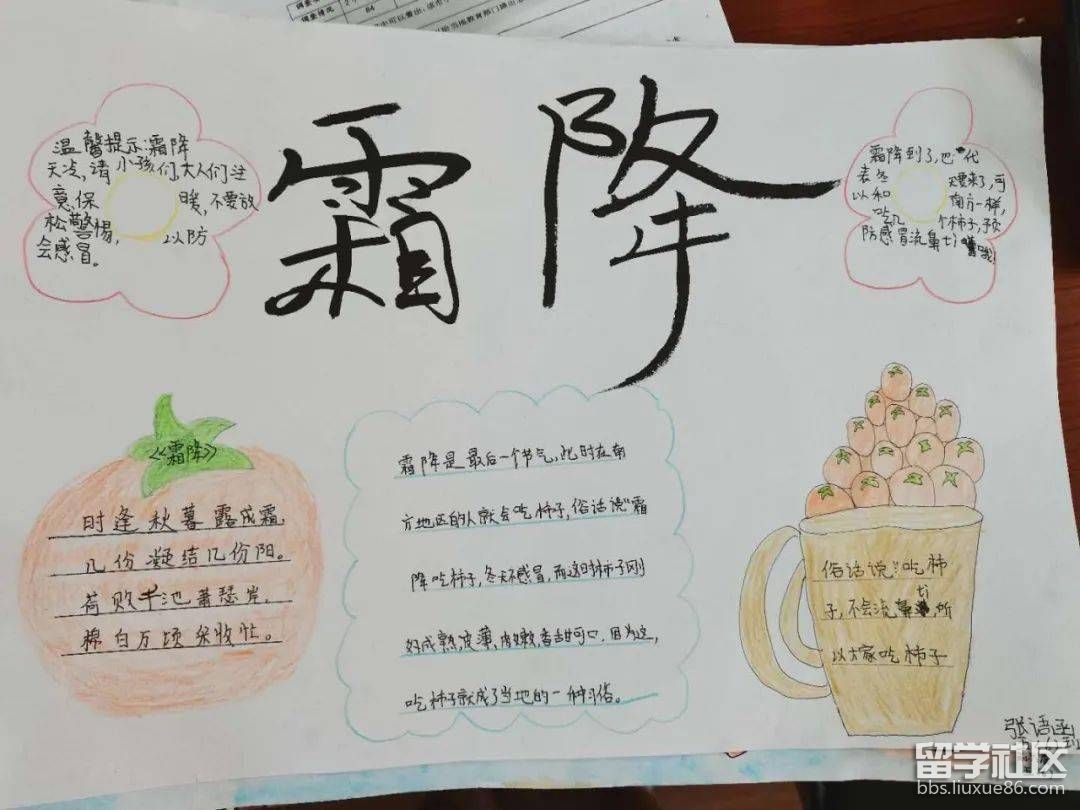 霜降
温馨提示霜降
天冷,请小孩们,大人们注
意保暖,不要放
松警惕,以防
会感冒。
霜降到了,也代
表冬天要来了,可
以和南方一样,
吃几个柿子,预
防感冒流鼻
《霜降》
时逢秋暮露成霜,
几份凝结几份阳。
荷败千池萧瑟岸,
棉白万顷采收忙。
霜降是最后一个节气,此时在南
方地区的人就会吃柿子,俗话说“霜
降吃柿子,冬天不感冒,而这时柿子刚
好成熟,皮薄,肉嫩,香甜可口,因为这,
吃柿子就成了当地的一种习俗。
俗话说:吃柿
子,不会流鼻,所
以大家吃柿子
张语函
留学社区
bbs.liuxue86.com
调查情况
84